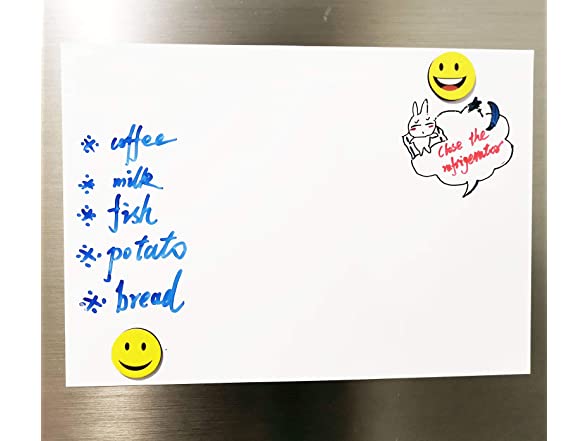 coffee
milk
fish
potato
bread
Close the
refrigerator